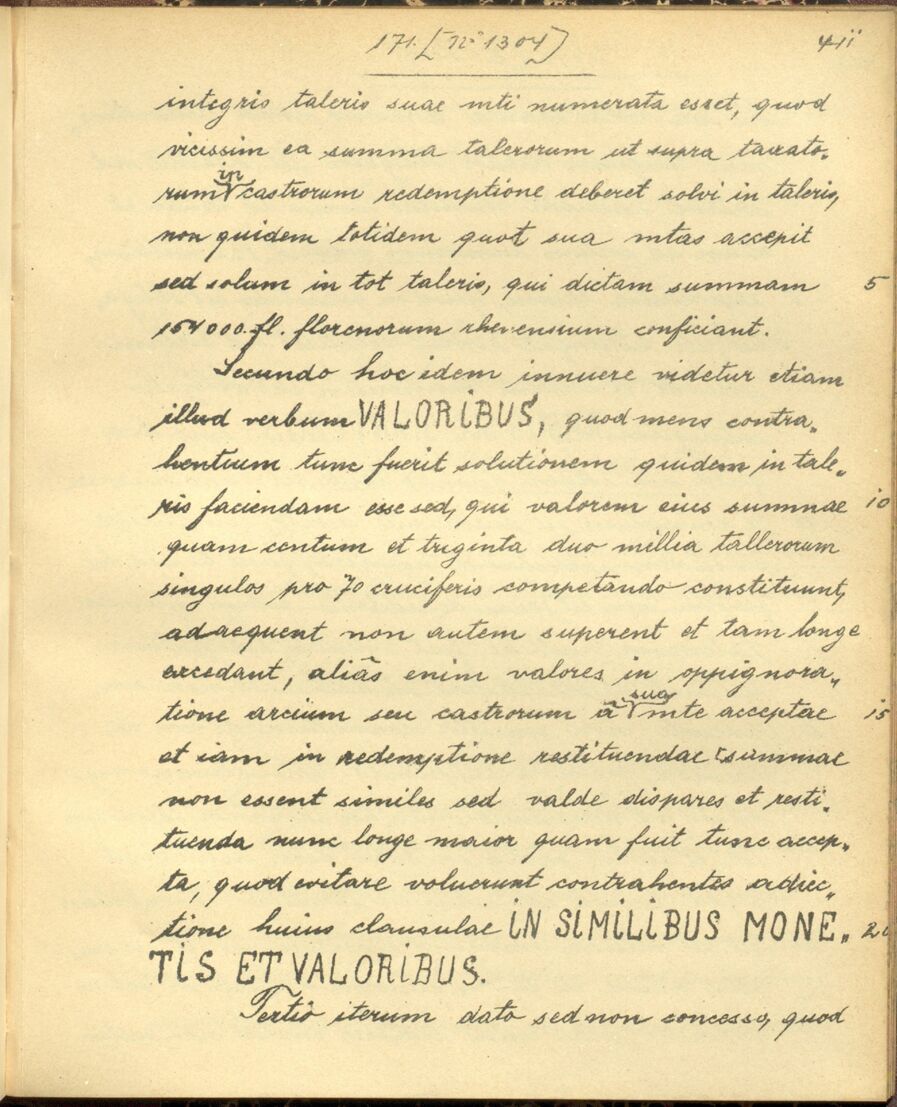 171. [nº 1304] 411
integris taleris suae mti numerata esset, quod
vicissim ea summa talerorum ut supra taxato„
rum in castrorum redemptione deberet solvi in taleris,
non quidem totidem quot sua mtas accepit
sed solum in tot taleris, qui dictam summam 5
154000 fl. florenorum rhenensium conficiant.
Secundo hoc idem innuere videtur etiam
illud verbum VALORIBUS, quod mens contra„
hentium tunc fuerit solutionem quidem in tale„
ris faciendam esse sed, qui valorem eius summae 10
quam centum et triginta duo millia tallerorum
singulos pro 70 cruciferis competando constituunt,
adaequent non autem superent et tam longe
excedant, aliâs enim valores in oppignora„
tione arcium seu castrorum â sua mte acceptae 15
et iam in redemptione restituendae summae
non essent similes sed valde dispares et resti„
tuenda nunc longe maior quam fuit tunc accep„
ta, quod evitare voluerunt contrahentes adiec„
tione huius clausulae IN SIMILIBUS MONE„ 20
TIS ET VALORIBUS.
Tertiô iterum dato sed non concesso, quod